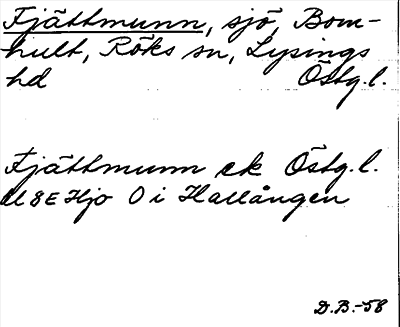 Fjättmunn, sjö, Bom-
hult, Röks sn, Lysings
hd Östg.l.
Fjättmunn ek Östg.l.
8 E Hjo O i Hallången
D.B.-58